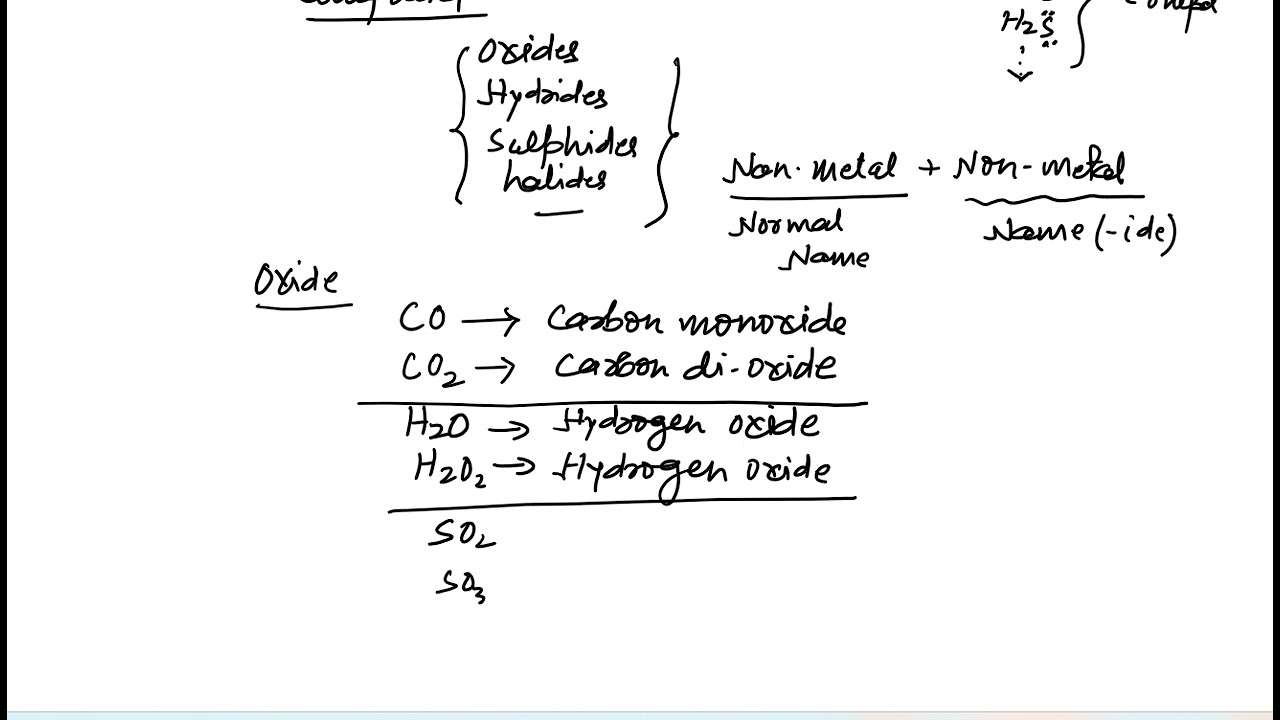 H2S
Oxides
Hydrides
Sulphides
halides
Non-metal + Non-metal
Normal Name
Name (-ide)
Oxide
CO → Carbon monoxide
CO2 → Carbon di-oxide
H2O → Hydrogen oxide
H2O2 → Hydrogen oxide
SO2
SO3